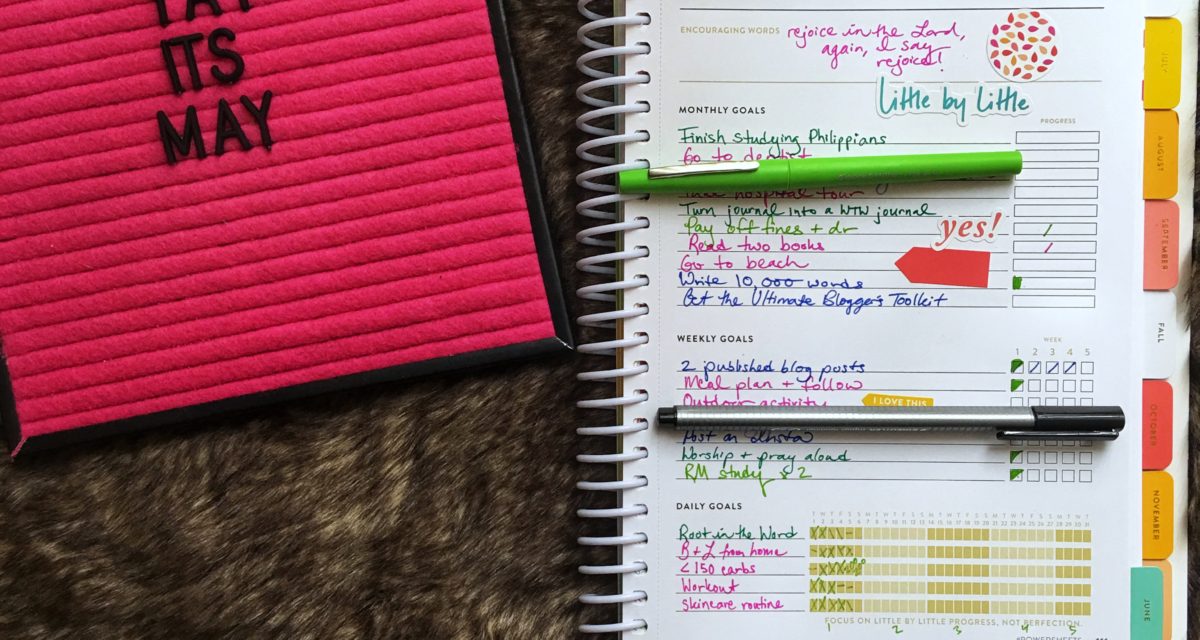 YAY
ITS
MAY
ENCOURAGING WORDS
rejoice in the Lord,
again, I say
rejoice!
Little by Little
MONTHLY GOALS
PROGRESS
Finish studying Philippians
Go to dentist
hospital tour
Turn journal into a WTW journal
Pay off fines + dr
yes!
Read two books
Go to beach
Write 10,000 words
Get the Ultimate Blogger's Toolkit
WEEKLY GOALS
WEEK
1 2 3 4 5
2 published blog posts
Meal plan + follow
Outdoor activity
I LOVE THIS
Post on Insta
Worship + pray aloud
RM study x 2
DAILY GOALS
Root in the Word
B + L from home
<150 carbs
Workout
skincare routine
FOCUS ON LITTLE BY LITTLE PROGRESS, NOT PERFECTION.
1 2 3 4 5
#POWERSHEETS
JULY
AUGUST
SEPTEMBER
FALL
OCTOBER
NOVEMBER
JUNE